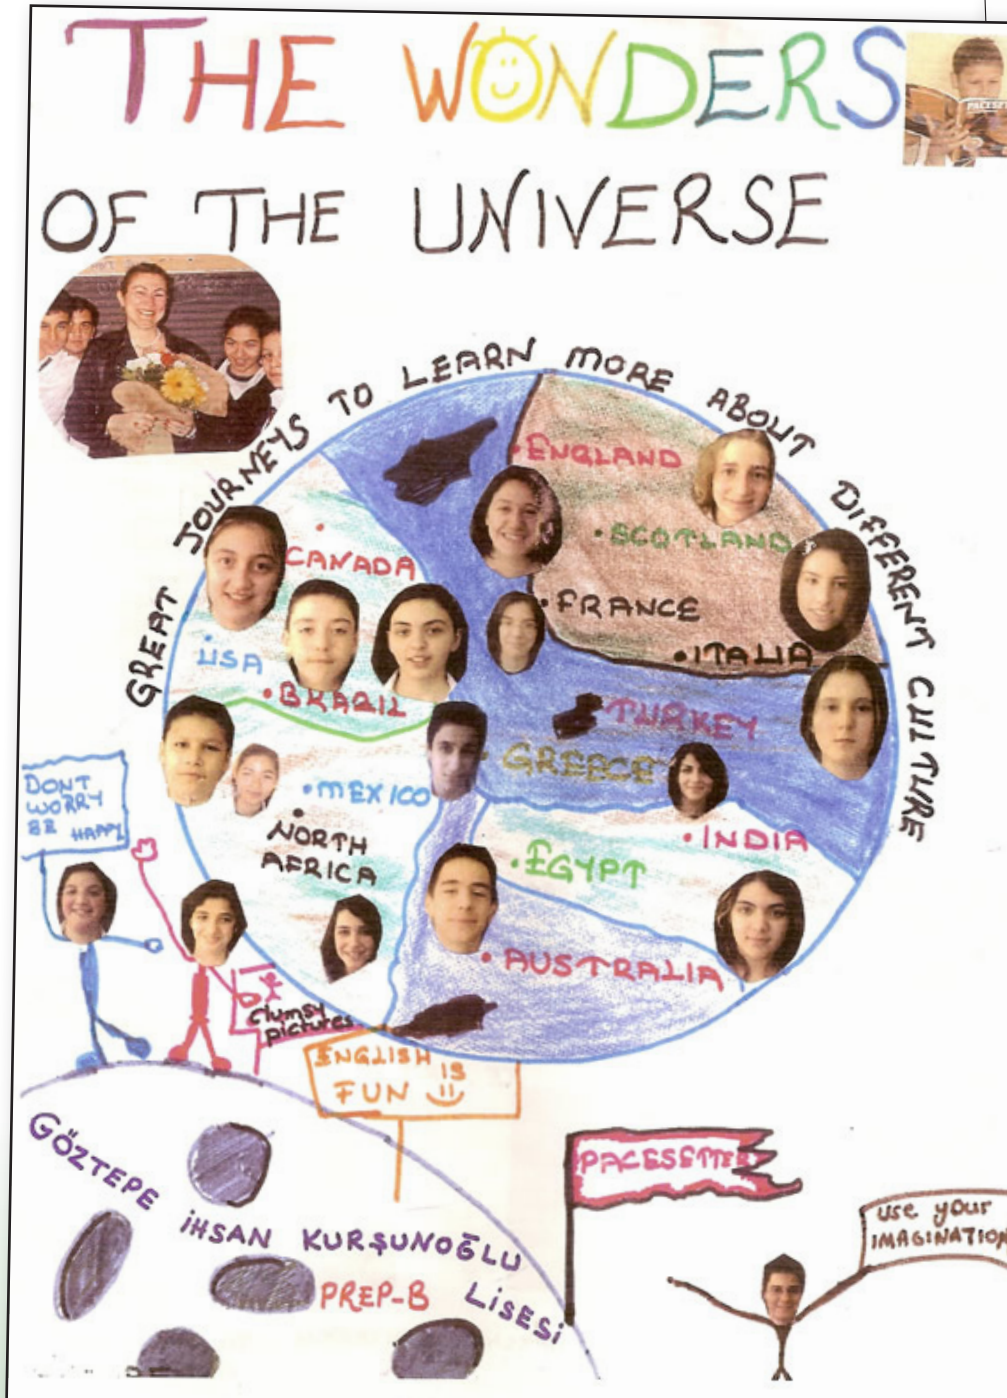 THE WONDERS
PACESET
OF THE UNIVERSE
GREAT JOURNEYS TO LEARN MORE ABOUT DIFFERENT CULTURE
ENGLAND
SCOTLAND
CANADA
FRANCE
ITALIA
USA
BRAZIL
TURKEY
GREECE
MEXICO
INDIA
NORTH
AFRICA
EGYPT
AUSTRALIA
DONT
WORRY
BE HAPPY
clumsy
pictures
ENGLISH IS
FUN
GÖZTEPE İHSAN KURŞUNOĞLU LİSESİ
PREP-B
PACESETTER
use your
IMAGINATION